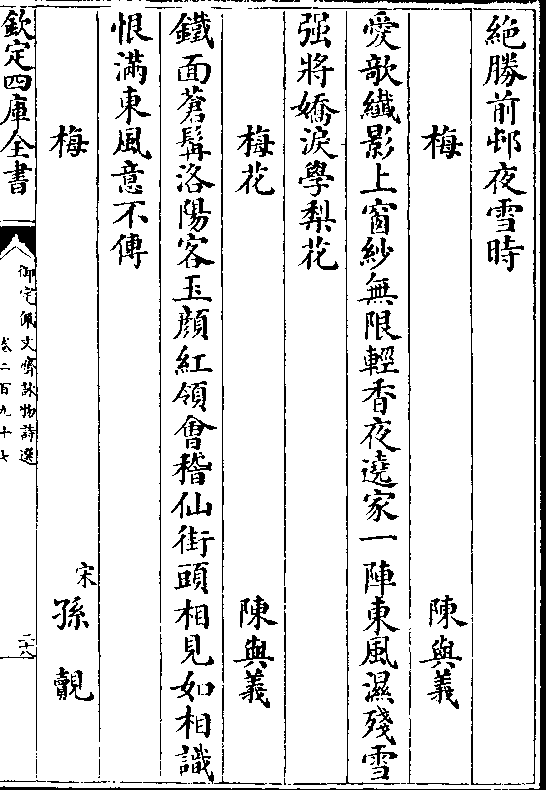 絶勝前邨夜雪時
梅　陳與義
愛欹纎影上窗紗無限輕香夜遶家一陣東風濕殘雪
强將嬌淚學梨花
梅花　陳與義
鐵面蒼髯洛陽客玉顔紅領會稽仙街頭相見如相識
恨滿東風意不傳
梅　宋孫覿
欽定四庫全書
御定佩文齋詠物詩選
卷二百九十七
二六